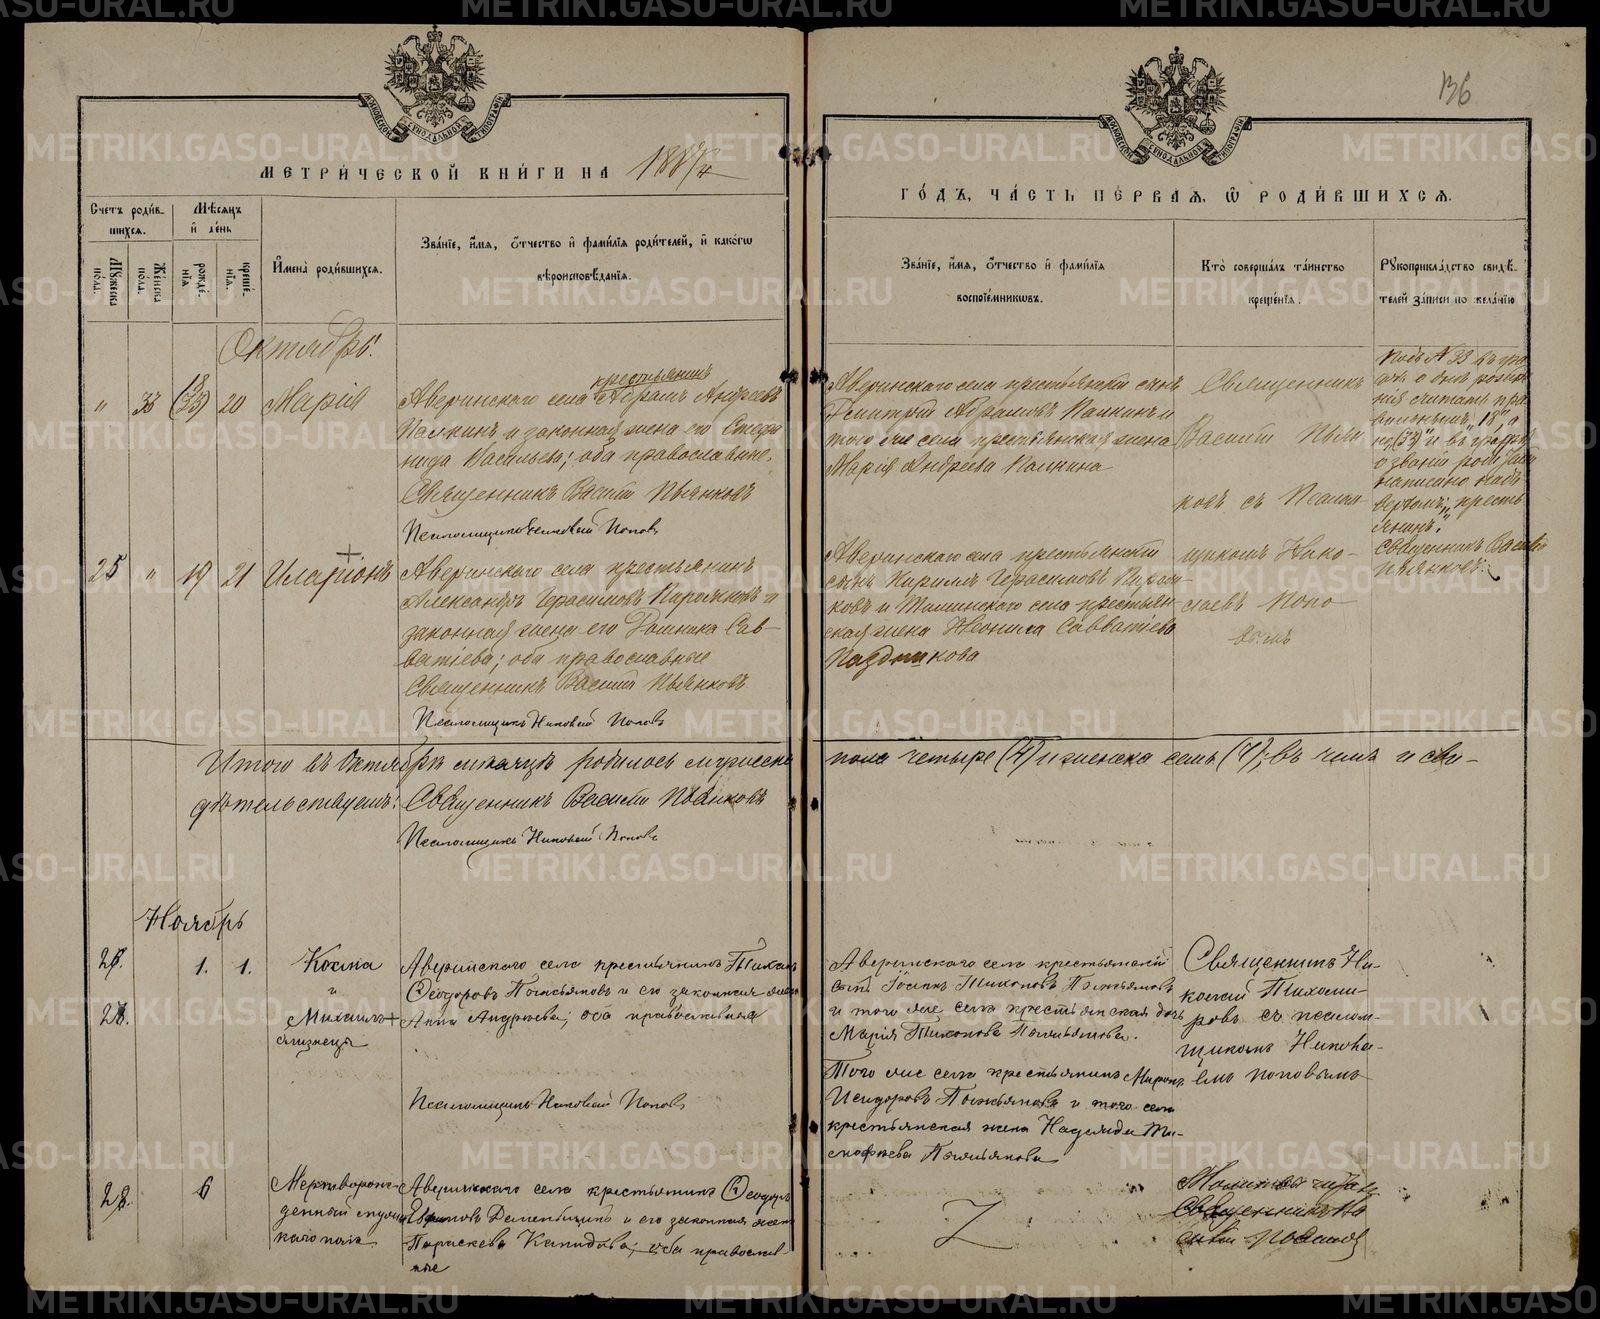 136
МЕТРИ́ЧЕСКОЙ КНИ́ГИ НА 1887/4
ГО́ДЪ, ЧА́СТЬ ПЕ́РВАЯ, Ѡ РОДИ́ВШИХСЯ.
Счетъ роди́в-
шихся.
Му́жеска по́ла.
Же́нска по́ла.
Мѣсяцъ
и҆ де́нь
рожде́-
нїѧ.
креще́-
нїѧ.
И҆мена̀ роди́вшихся.
Зва́нїе, и҆́мя, ѻ҆́тчество и҆ фами́лїя роди́телей, и҆ како́гѡ
вѣроисповѣ́данїя.
Зва́нїе, и҆́мя, ѻ҆́тчество и҆ фами́лїя
воспрїе́мникѡвъ.
Кто̀ соверша́лъ та́инство
креще́нїя.
Рꙋкоприкла́дство свидѣ́-
телей за́писи по жела́нїю
Октябрь.
" 33 18 (33) 20 Марія
крестьянинъ
Аверинскаго села Абрамъ Андреевъ
Калкинъ и законная жена его Стефа
нида Васильева; оба православные.
Священникъ Василій Пьянковъ
Псаломщикъ Николай Поповъ
Аверинскаго села крестьянскій сынъ
Димитрій Абрамовъ Калкинъ и
того же села крестьянская жена
Марія Андреева Калкина
Священникъ
Василій Пьян
ковъ съ Псалом-
щикомъ Нико-
лаемъ Попо
вымъ
Подъ № 33 въ гра
фѣ о днѣ рожде
нія считать пра
вильнымъ "18", а
не (33) и въ графѣ
о званіи родителей
написано надъ
верхомъ: "кресть
янинъ".
Священникъ Василій
Пьянковъ.
25 " 19 21 Иларіонъ
Аверинскаго села крестьянинъ
Александръ Герасимовъ
законная жена его Домника Сав-
ватіева; оба православные
Священникъ Василій Пьянковъ
Псаломщикъ Николай Поповъ
Аверинскаго села крестьянскій
сынъ Кириллъ Герасимовъ
ковъ и села крестьян-
ская жена Неонила Савватіева
Итого въ Октябрѣ мѣсяцѣ родилось мужеска
пола четыре (4) и женска семь (7); въ чемъ и сви-
дѣтельствуемъ: Священникъ Василій Пьянковъ
Псаломщикъ Николай Поповъ
Ноябрь
26. 1. 1. Косма
и
27. Михаилъ
близнецы
Аверинскаго села крестьянинъ Тихонъ
Ѳеодоровъ и его законная жена
Анна Андреева; оба православные
Псаломщикъ Николай Поповъ
Аверинскаго села крестьянскій
сынъ Іоаннъ Тихоновъ
и того же села крестьянская дочь
Марія Тихонова
Того же села крестьянинъ Миронъ
Исидоровъ и того села
крестьянская жена Надежда Ти-
моѳеева
Священникъ Ни-
колай Тихоми-
ровъ съ псалом-
щикомъ Никола-
емъ Поповымъ
28. 6 Мертворож-
денный муже-
каго пола
Аверинскаго села крестьянинъ Ѳеодоръ
Дементьинъ и его законная жена
Параскева; оба православ-
ные
Молитвы читалъ
Священникъ Ва
силій Пьянковъ